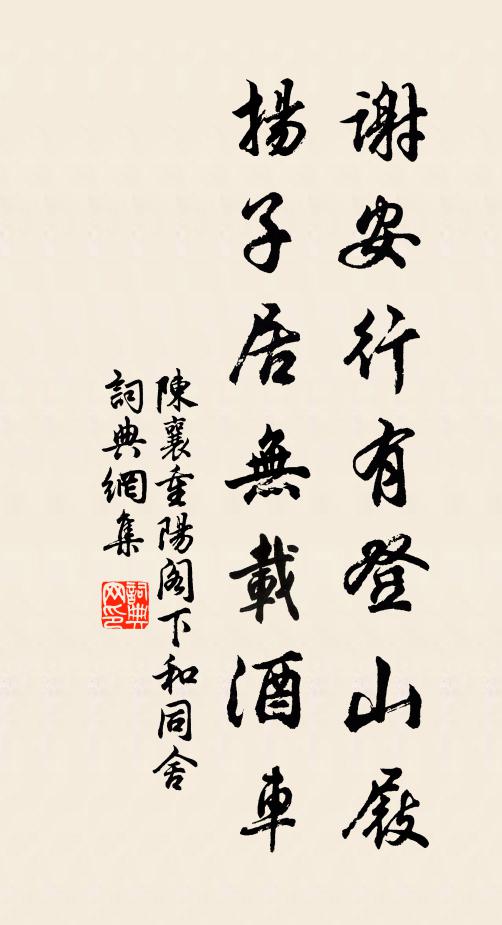 謝安行有登山屐
揚子居無載酒車
陳襄重陽阁下和同舍
詞典網集
詞典网印